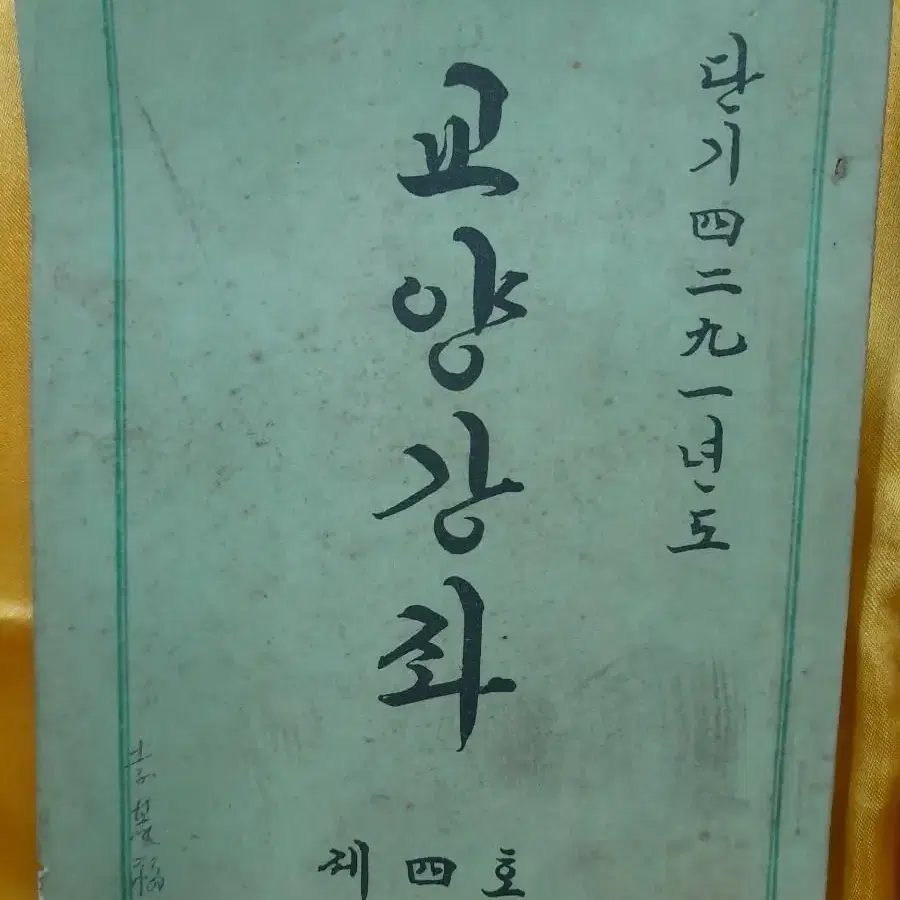 단기四二九一년도
교양강좌
제四호